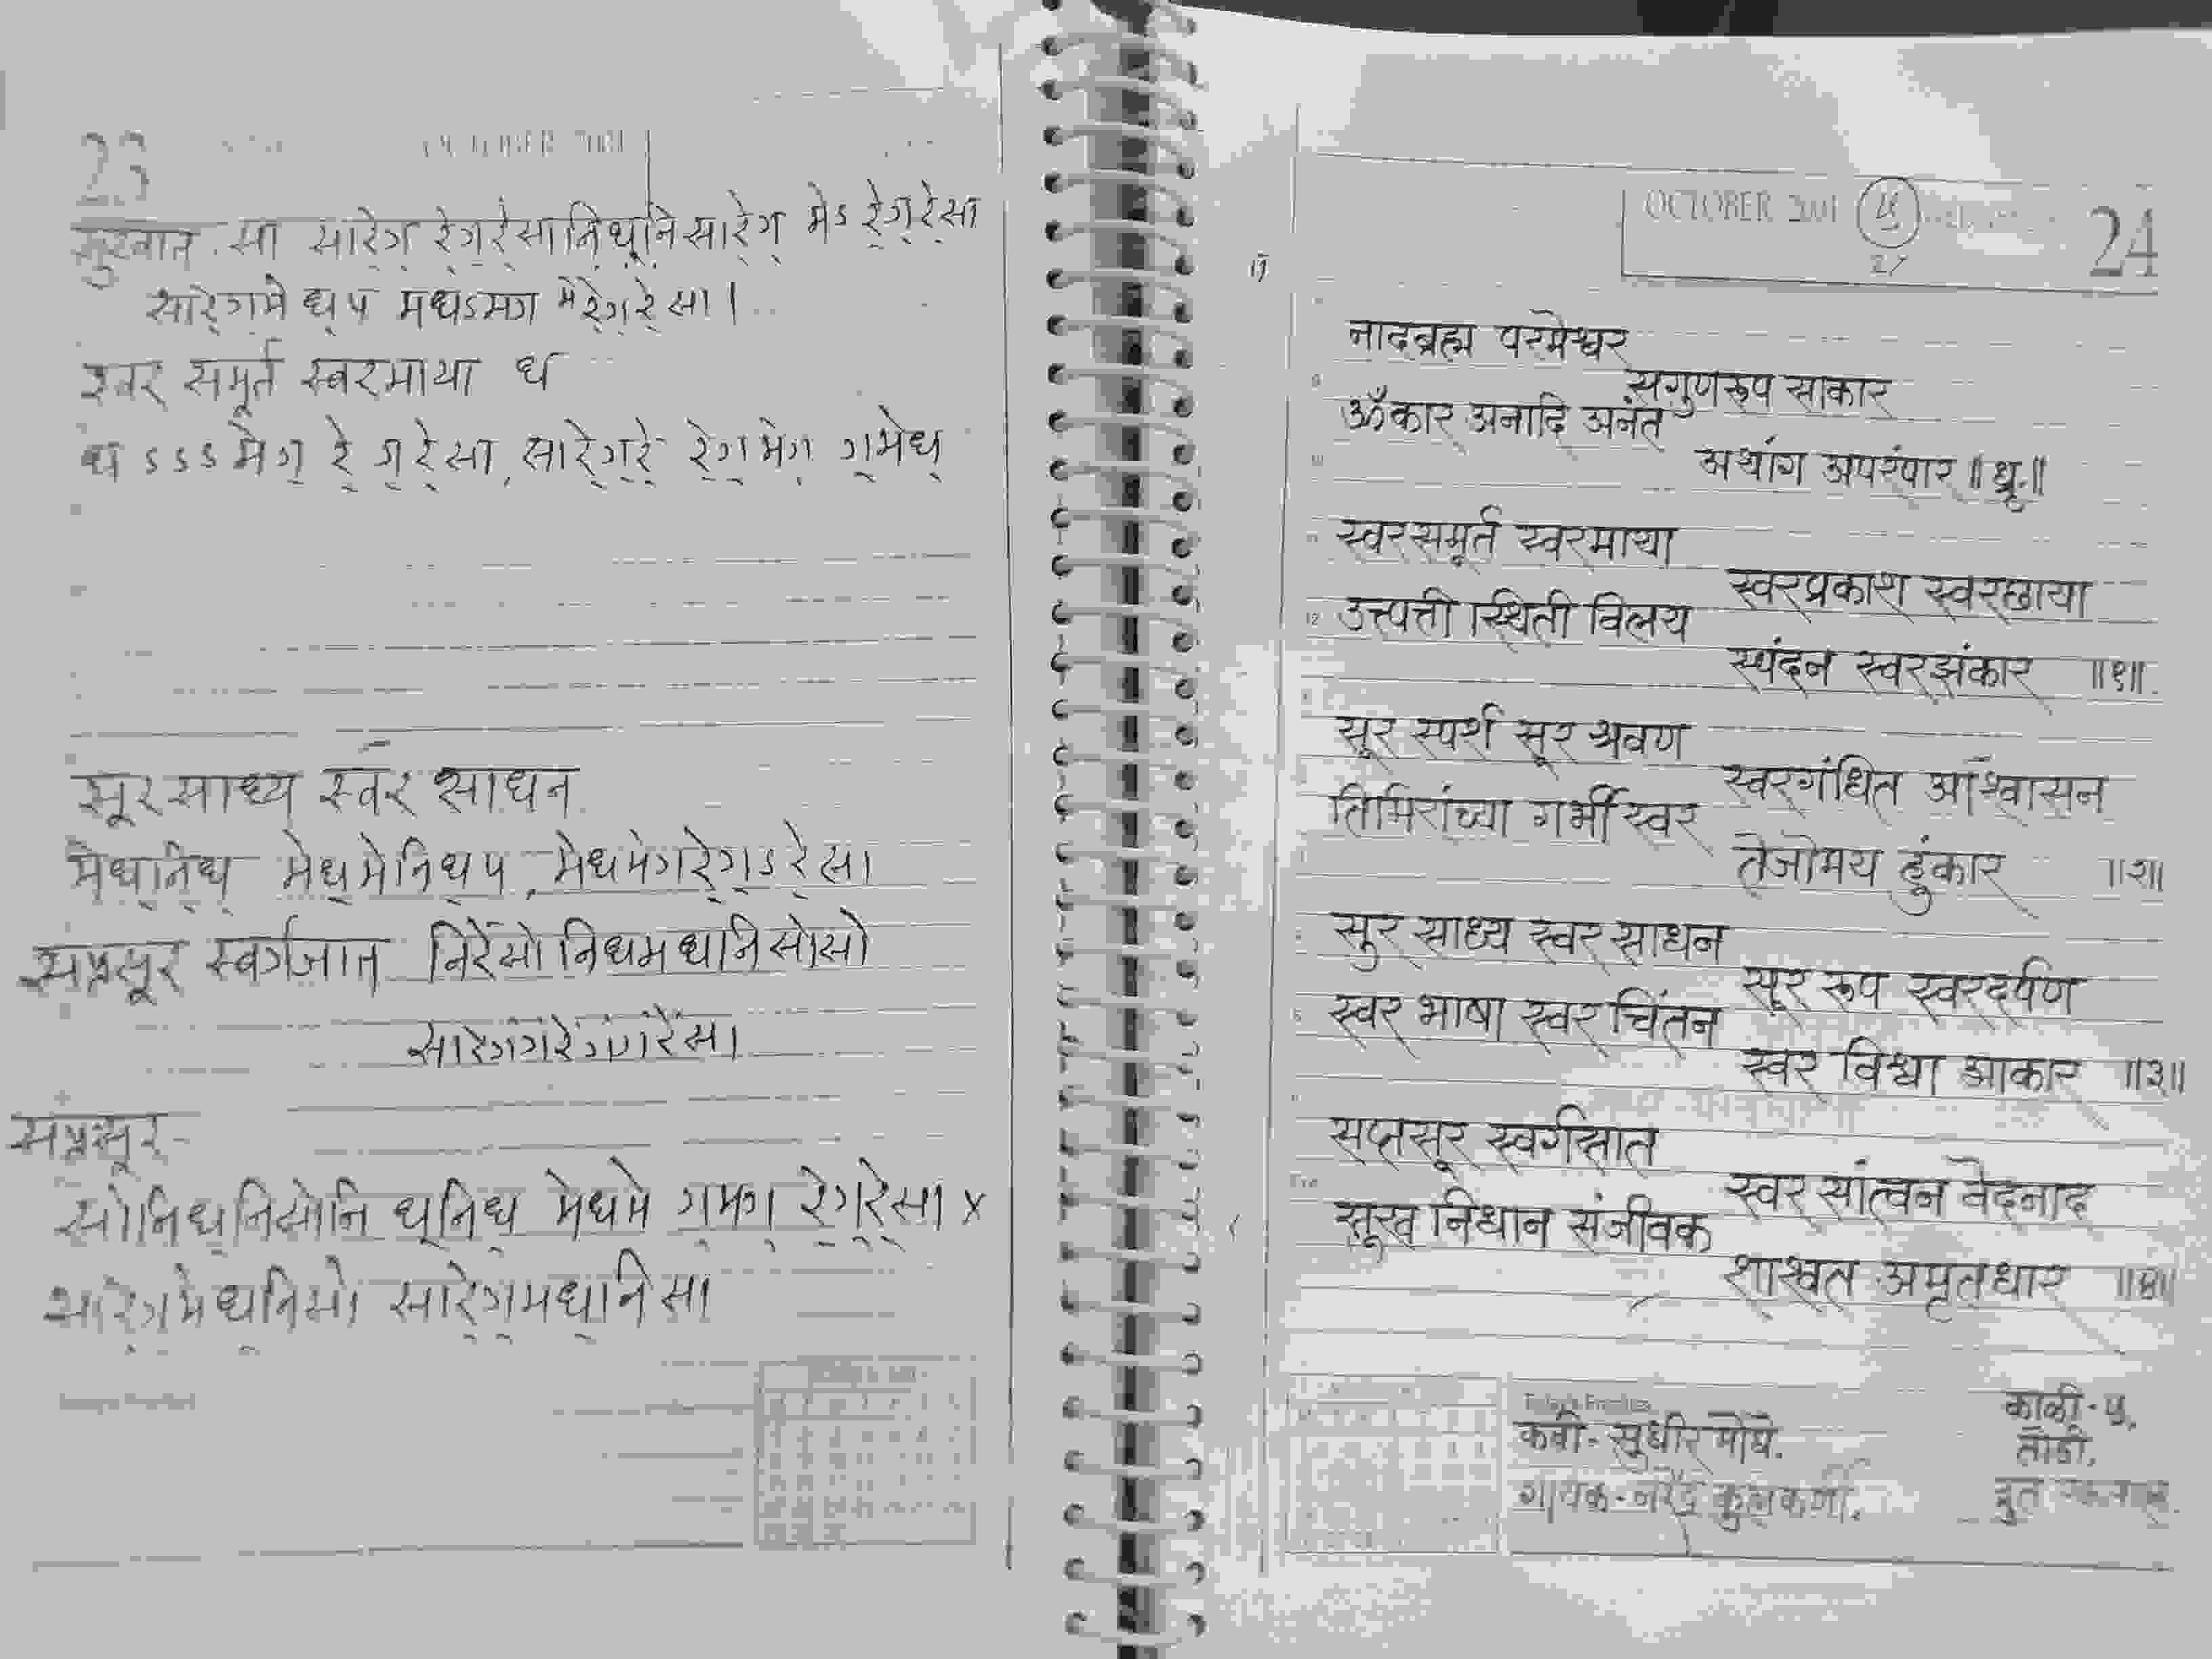 23 OCTOBER 2001
सुरवात. सा सारे॒ग॒ रे॒ग॒रे॒सानि़ध़॒नि़सारे॒ग॒ मेऽ रे॒ग॒रे॒सा
सारे॒गमे ध॒प मधऽमग मेरे॒ग॒रे॒सा।
स्वर समूर्त स्वरमाया ध
ध ऽऽऽ मेग॒ रे॒ ग॒रे॒सा, सारे॒ग॒रे॒ रे॒ग॒मेग॒ ग॒मेध॒
सूर साध्य स्वर साधन
मेध॒नि॒ध॒ मेध॒मेनिध॒प, मेधमेगरे॒ग॒ऽरे॒सा
सप्तसूर स्वर्गजात निरेंसां निधमधनिसांसां
सारेगंगंरेंगंगंरेंसा
सप्तसूर-
सांनिध॒निसांनि ध॒निध॒ मेधमे ग॒मग॒ रे॒ग॒रे॒सा x
सारे॒गमेध॒निसां सारे॒ग॒मध॒निसा
OCTOBER 2001
24
नादब्रह्म परमेश्वर
सगुणरूप साकार
ॐकार अनादि अनंत
अथांग अपरंपार ॥ध्रृ.॥
स्वरसमूर्त स्वरमाया
स्वरप्रकाश स्वरछाया
उत्त्पत्ती स्थिती विलय
स्पंदन स्वरझंकार ॥१॥
सूर स्पर्श सूर श्रवण
स्वरगंधित आश्वासन
तिमिरांच्या गर्भी स्वर
तेजोमय हुंकार ॥२॥
सुर साध्य स्वर साधन
सूर रूप स्वरदर्पण
स्वर भाषा स्वर चिंतन
स्वर विश्वा आकार ॥३॥
सप्तसूर स्वर्गसात
स्वर सांत्वन वेदनाद
सूख निधान संजीवक
शाश्वत अमृतधार ॥४॥
काळी-५,
कवी- सुधीर मोघे.
तोडी.
गायक-नरेंद्र कुलकर्णी.
द्रुत